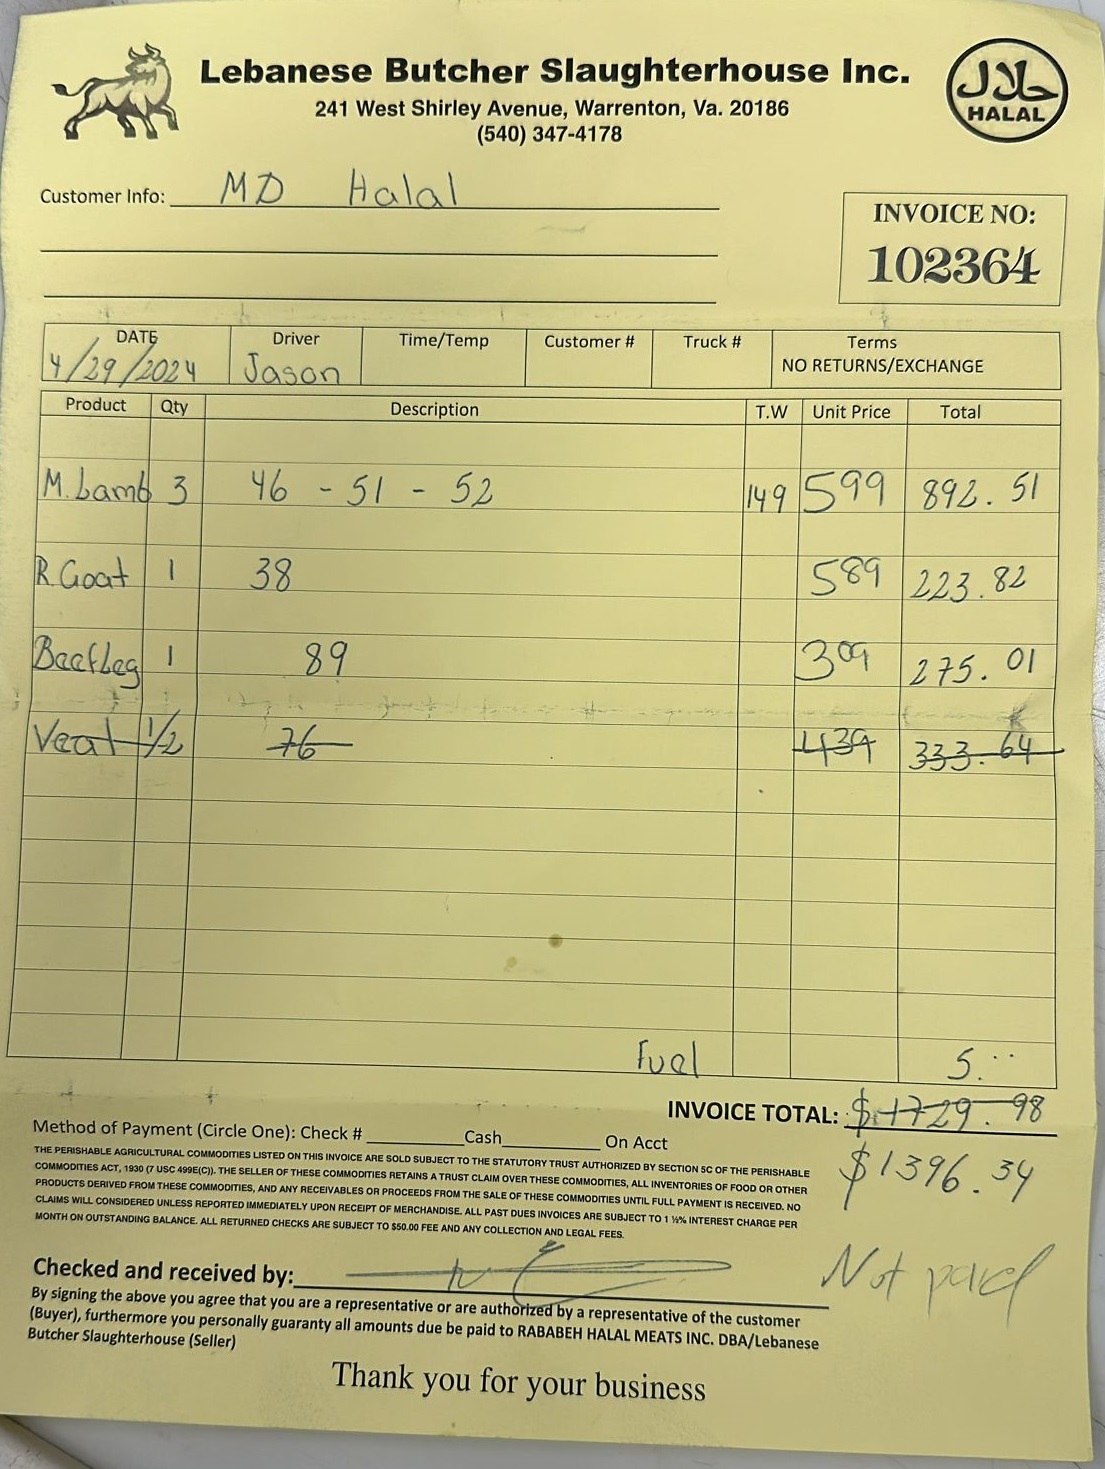 Lebanese Butcher Slaughterhouse Inc.
241 West Shirley Avenue, Warrenton, Va. 20186
(540) 347-4178
حلال
HALAL
Customer Info: MD Halal
INVOICE NO:
102364
DATE Driver Time/Temp Customer # Truck # Terms
4/29/2024 Jason NO RETURNS/EXCHANGE
Product Qty Description T.W Unit Price Total
M.Lamb 3 46 - 51 - 52 149 599 892.51
R.Goat 1 38 589 223.82
BeefLeg 1 89 309 275.01
Veal 1/2 76 439 333.64
Fuel 5...
INVOICE TOTAL: $1729.98
Method of Payment (Circle One): Check # Cash On Acct
$1396.34
THE PERISHABLE AGRICULTURAL COMMODITIES LISTED ON THIS INVOICE ARE SOLD SUBJECT TO THE STATUTORY TRUST AUTHORIZED BY SECTION 5C OF THE PERISHABLE
COMMODITIES ACT, 1930 (7 USC 499E(C)). THE SELLER OF THESE COMMODITIES RETAINS A TRUST CLAIM OVER THESE COMMODITIES, ALL INVENTORIES OF FOOD OR OTHER
PRODUCTS DERIVED FROM THESE COMMODITIES, AND ANY RECEIVABLES OR PROCEEDS FROM THE SALE OF THESE COMMODITIES UNTIL FULL PAYMENT IS RECEIVED. NO
CLAIMS WILL CONSIDERED UNLESS REPORTED IMMEDIATELY UPON RECEIPT OF MERCHANDISE. ALL PAST DUES INVOICES ARE SUBJECT TO 1 ½% INTEREST CHARGE PER
MONTH ON OUTSTANDING BALANCE. ALL RETURNED CHECKS ARE SUBJECT TO $50.00 FEE AND ANY COLLECTION AND LEGAL FEES.
Checked and received by:
Not paid
By signing the above you agree that you are a representative or are authorized by a representative of the customer
(Buyer), furthermore you personally guaranty all amounts due be paid to RABABEH HALAL MEATS INC. DBA/Lebanese
Butcher Slaughterhouse (Seller)
Thank you for your business